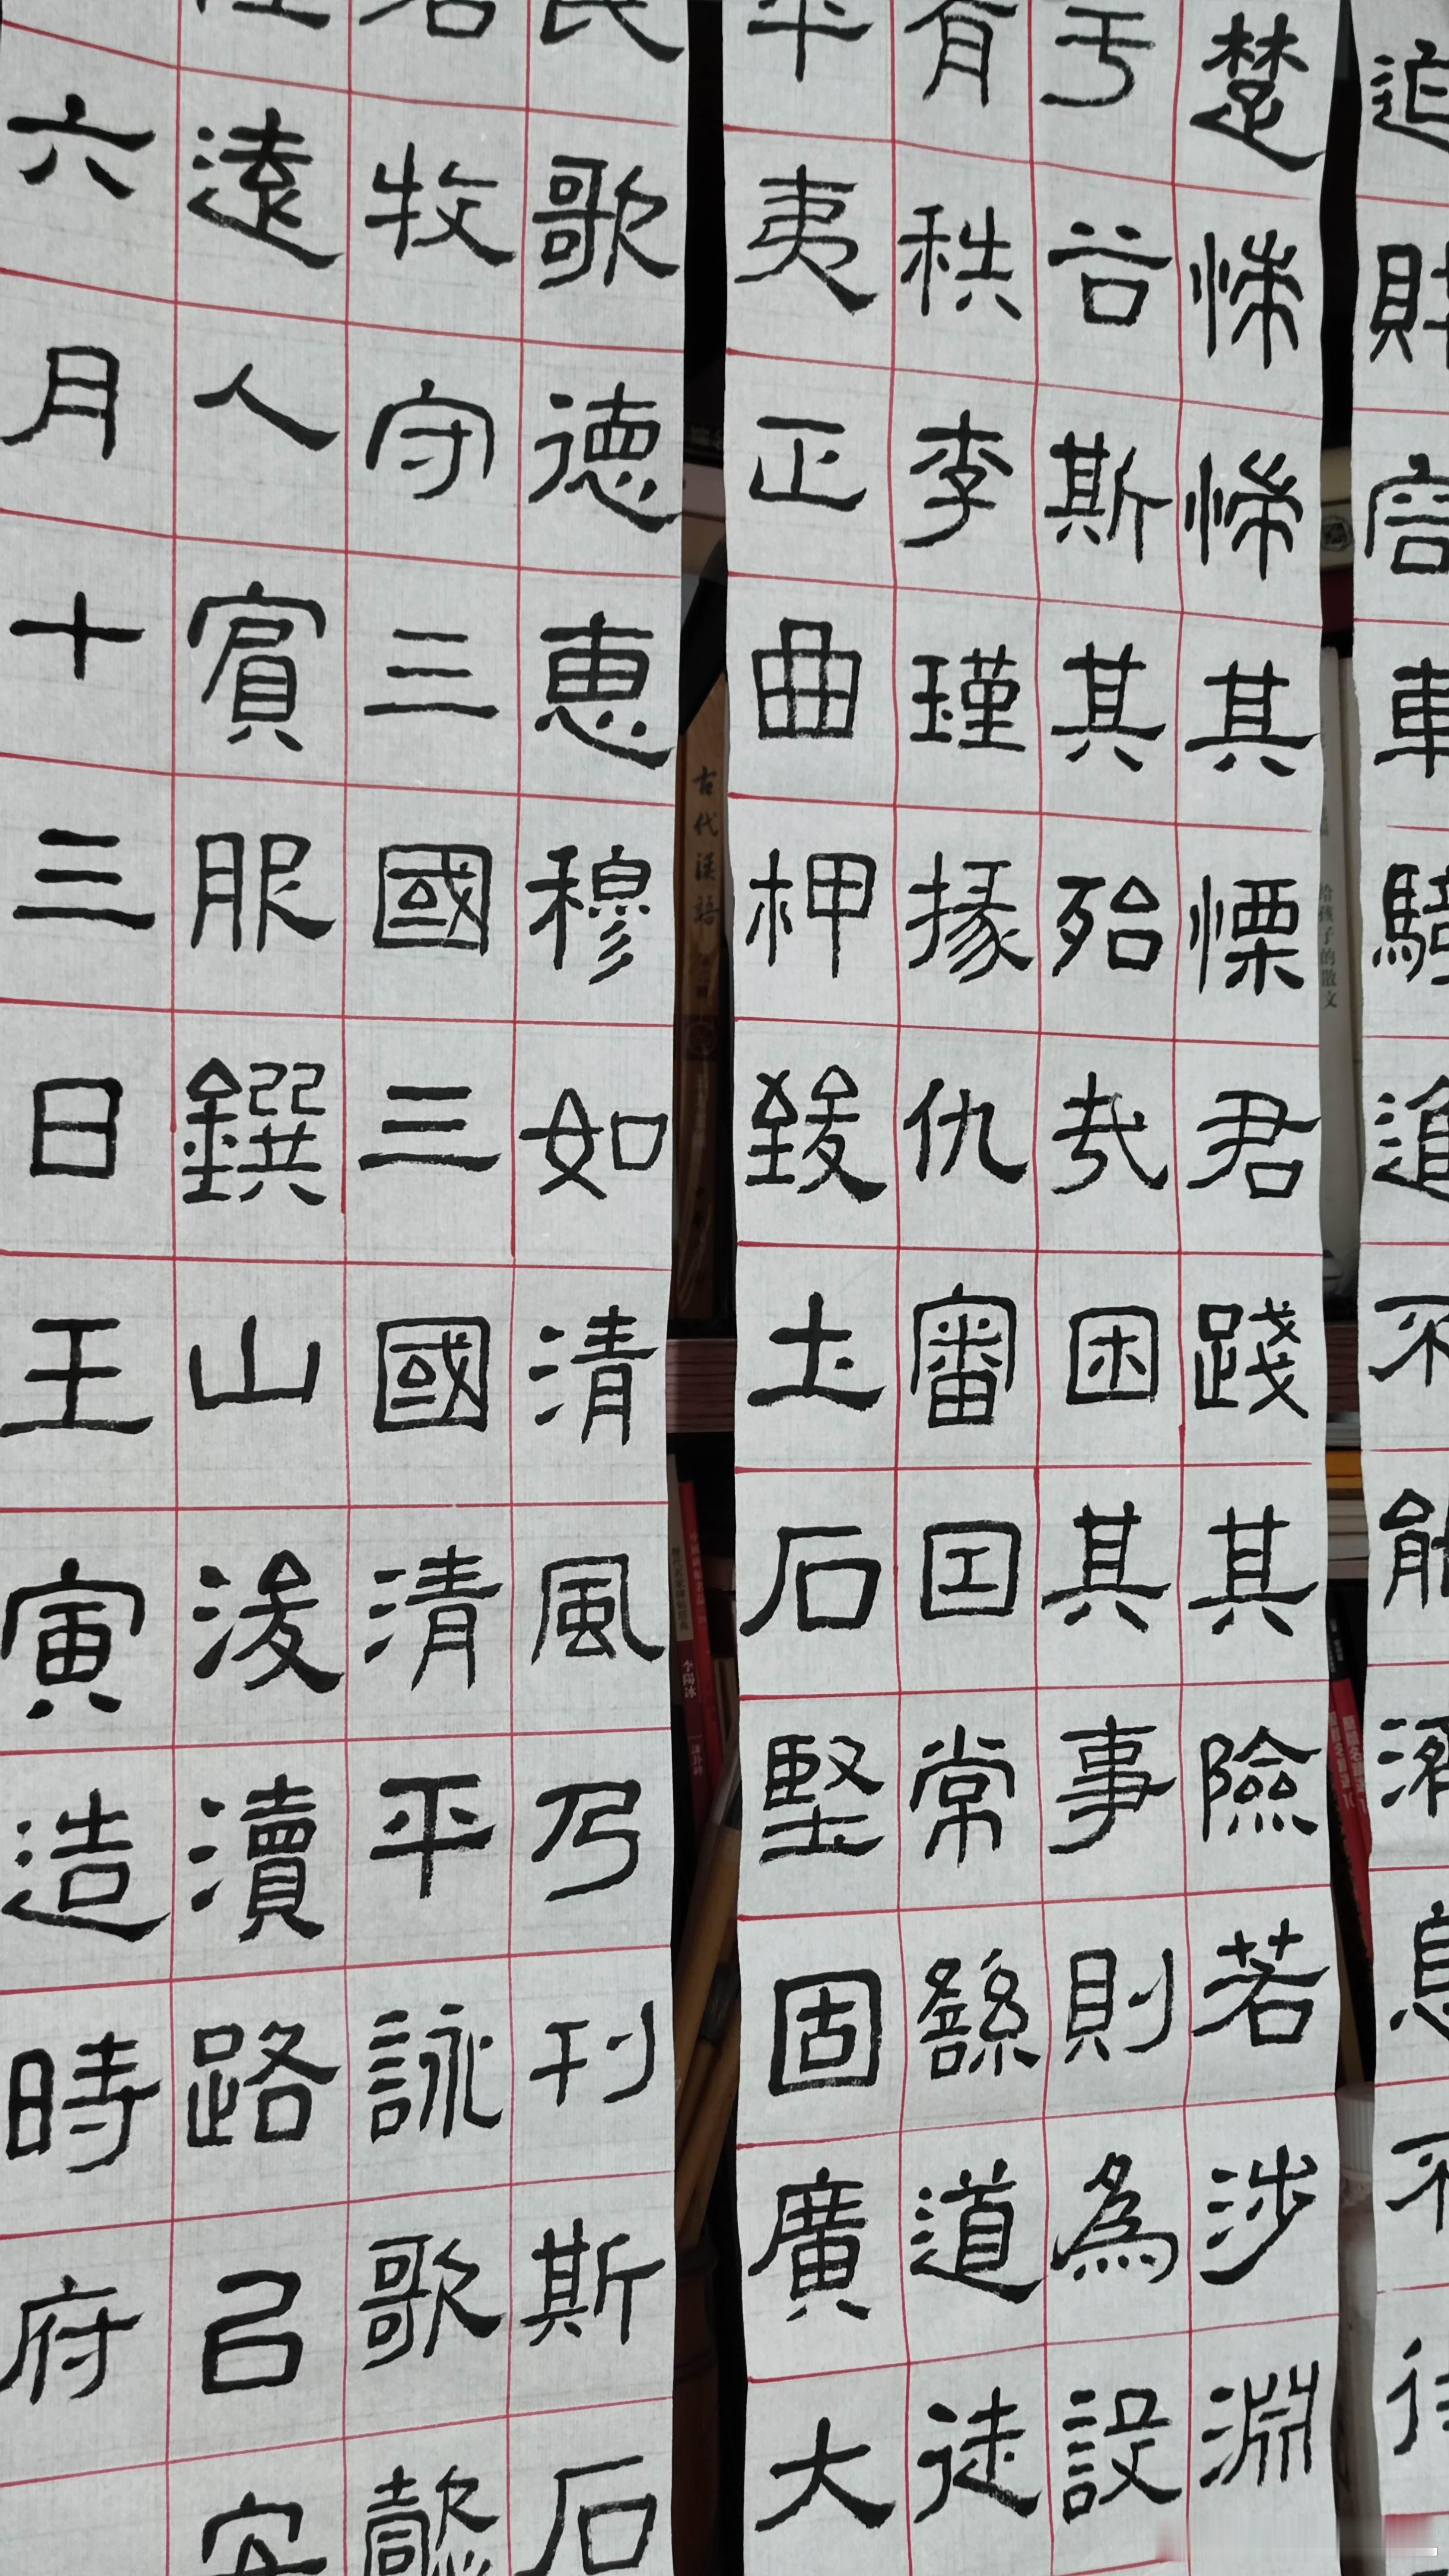 迫財容車騎進不能濟息不得
楚惴惴其慄君踐其險若涉淵
于谷斯其殆哉困其事則為設
有秩李瑾掾仇審因常繇道徒
平夷正曲柙致土石堅固廣大
民歌德惠穆如清風乃刊斯石
牧守三國三國清平詠歌懿
遠人賓服鐉山浚瀆路㠯安
六月十三日壬寅造時府
古代漢語
给孩子的散文